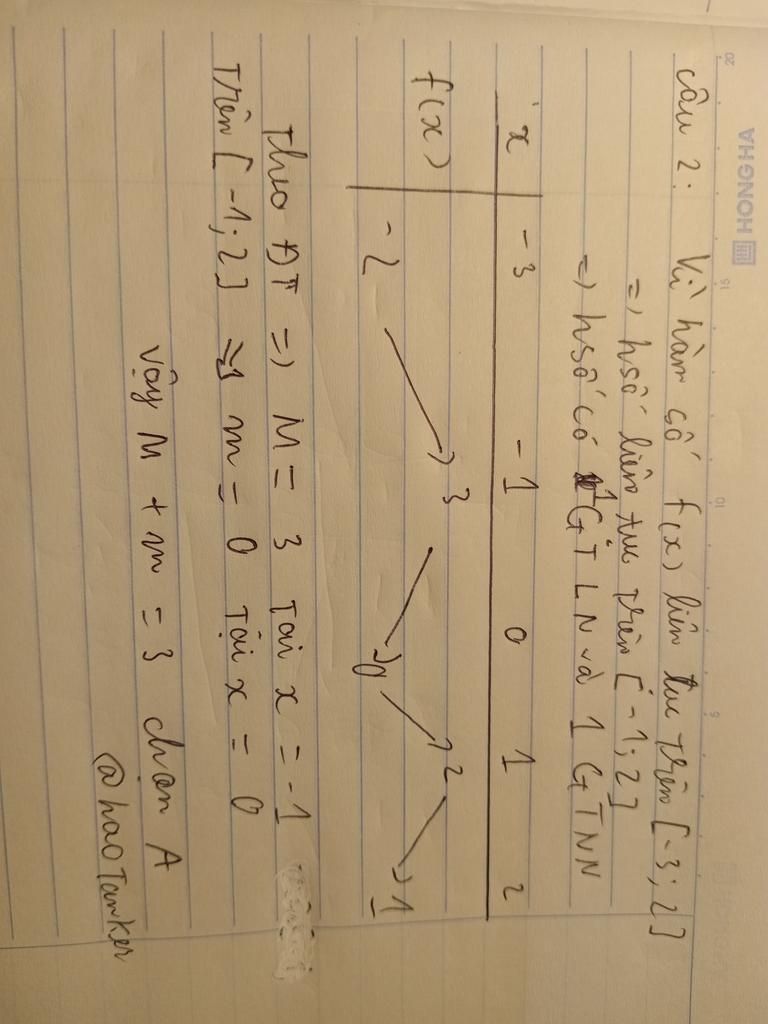 HONGHA
20 15 10 5
Câu 2: Vì hàm số f(x) liên tục trên [-3; 2]
=> hsố liên tục trên [-1; 2]
=> hsố có 1 GTLN và 1 GTNN
x -3 -1 0 1 2
f(x) -2 3 0 2 1
Theo ĐT => M = 3 tại x = -1
Trên [-1; 2] => m = 0 tại x = 0
Vậy M + m = 3 chọn A
@haoTanker